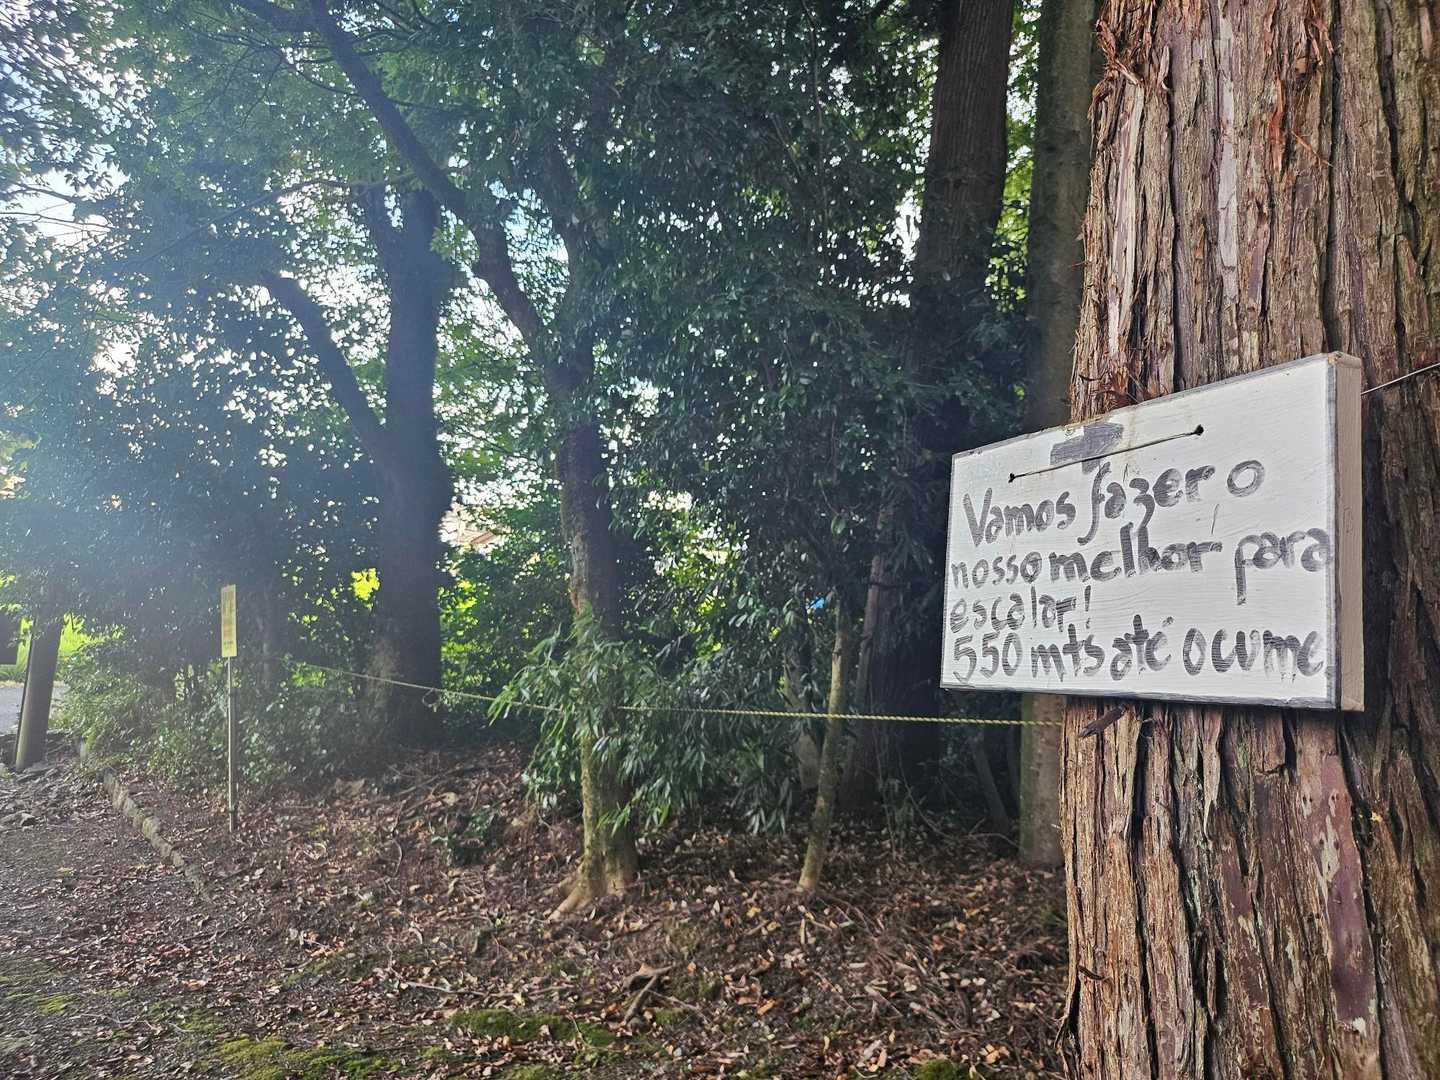 Vamos fazer o
nosso melhor para
escalar!
550 mts até o cume